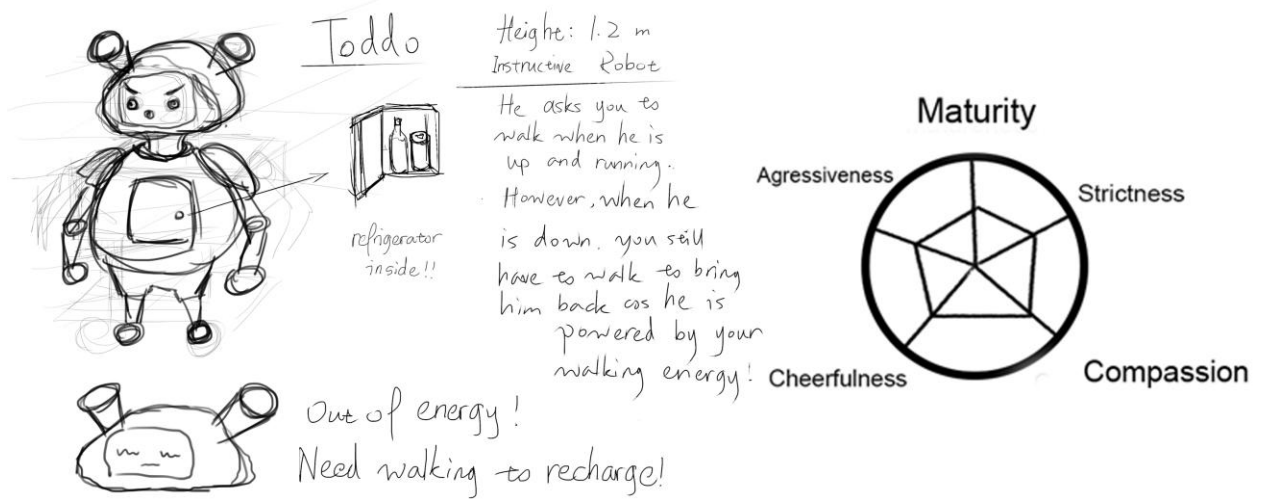 Toddo
Height: 1.2 m
Instructive Robot
He asks you to
walk when he is
up and running.
However, when he
is down, you still
have to walk to bring
him back cos he is
powered by your
walking energy!
refrigerator
inside!!
Out of energy!
Need walking to recharge!
Maturity
Agressiveness
Strictness
Cheerfulness
Compassion